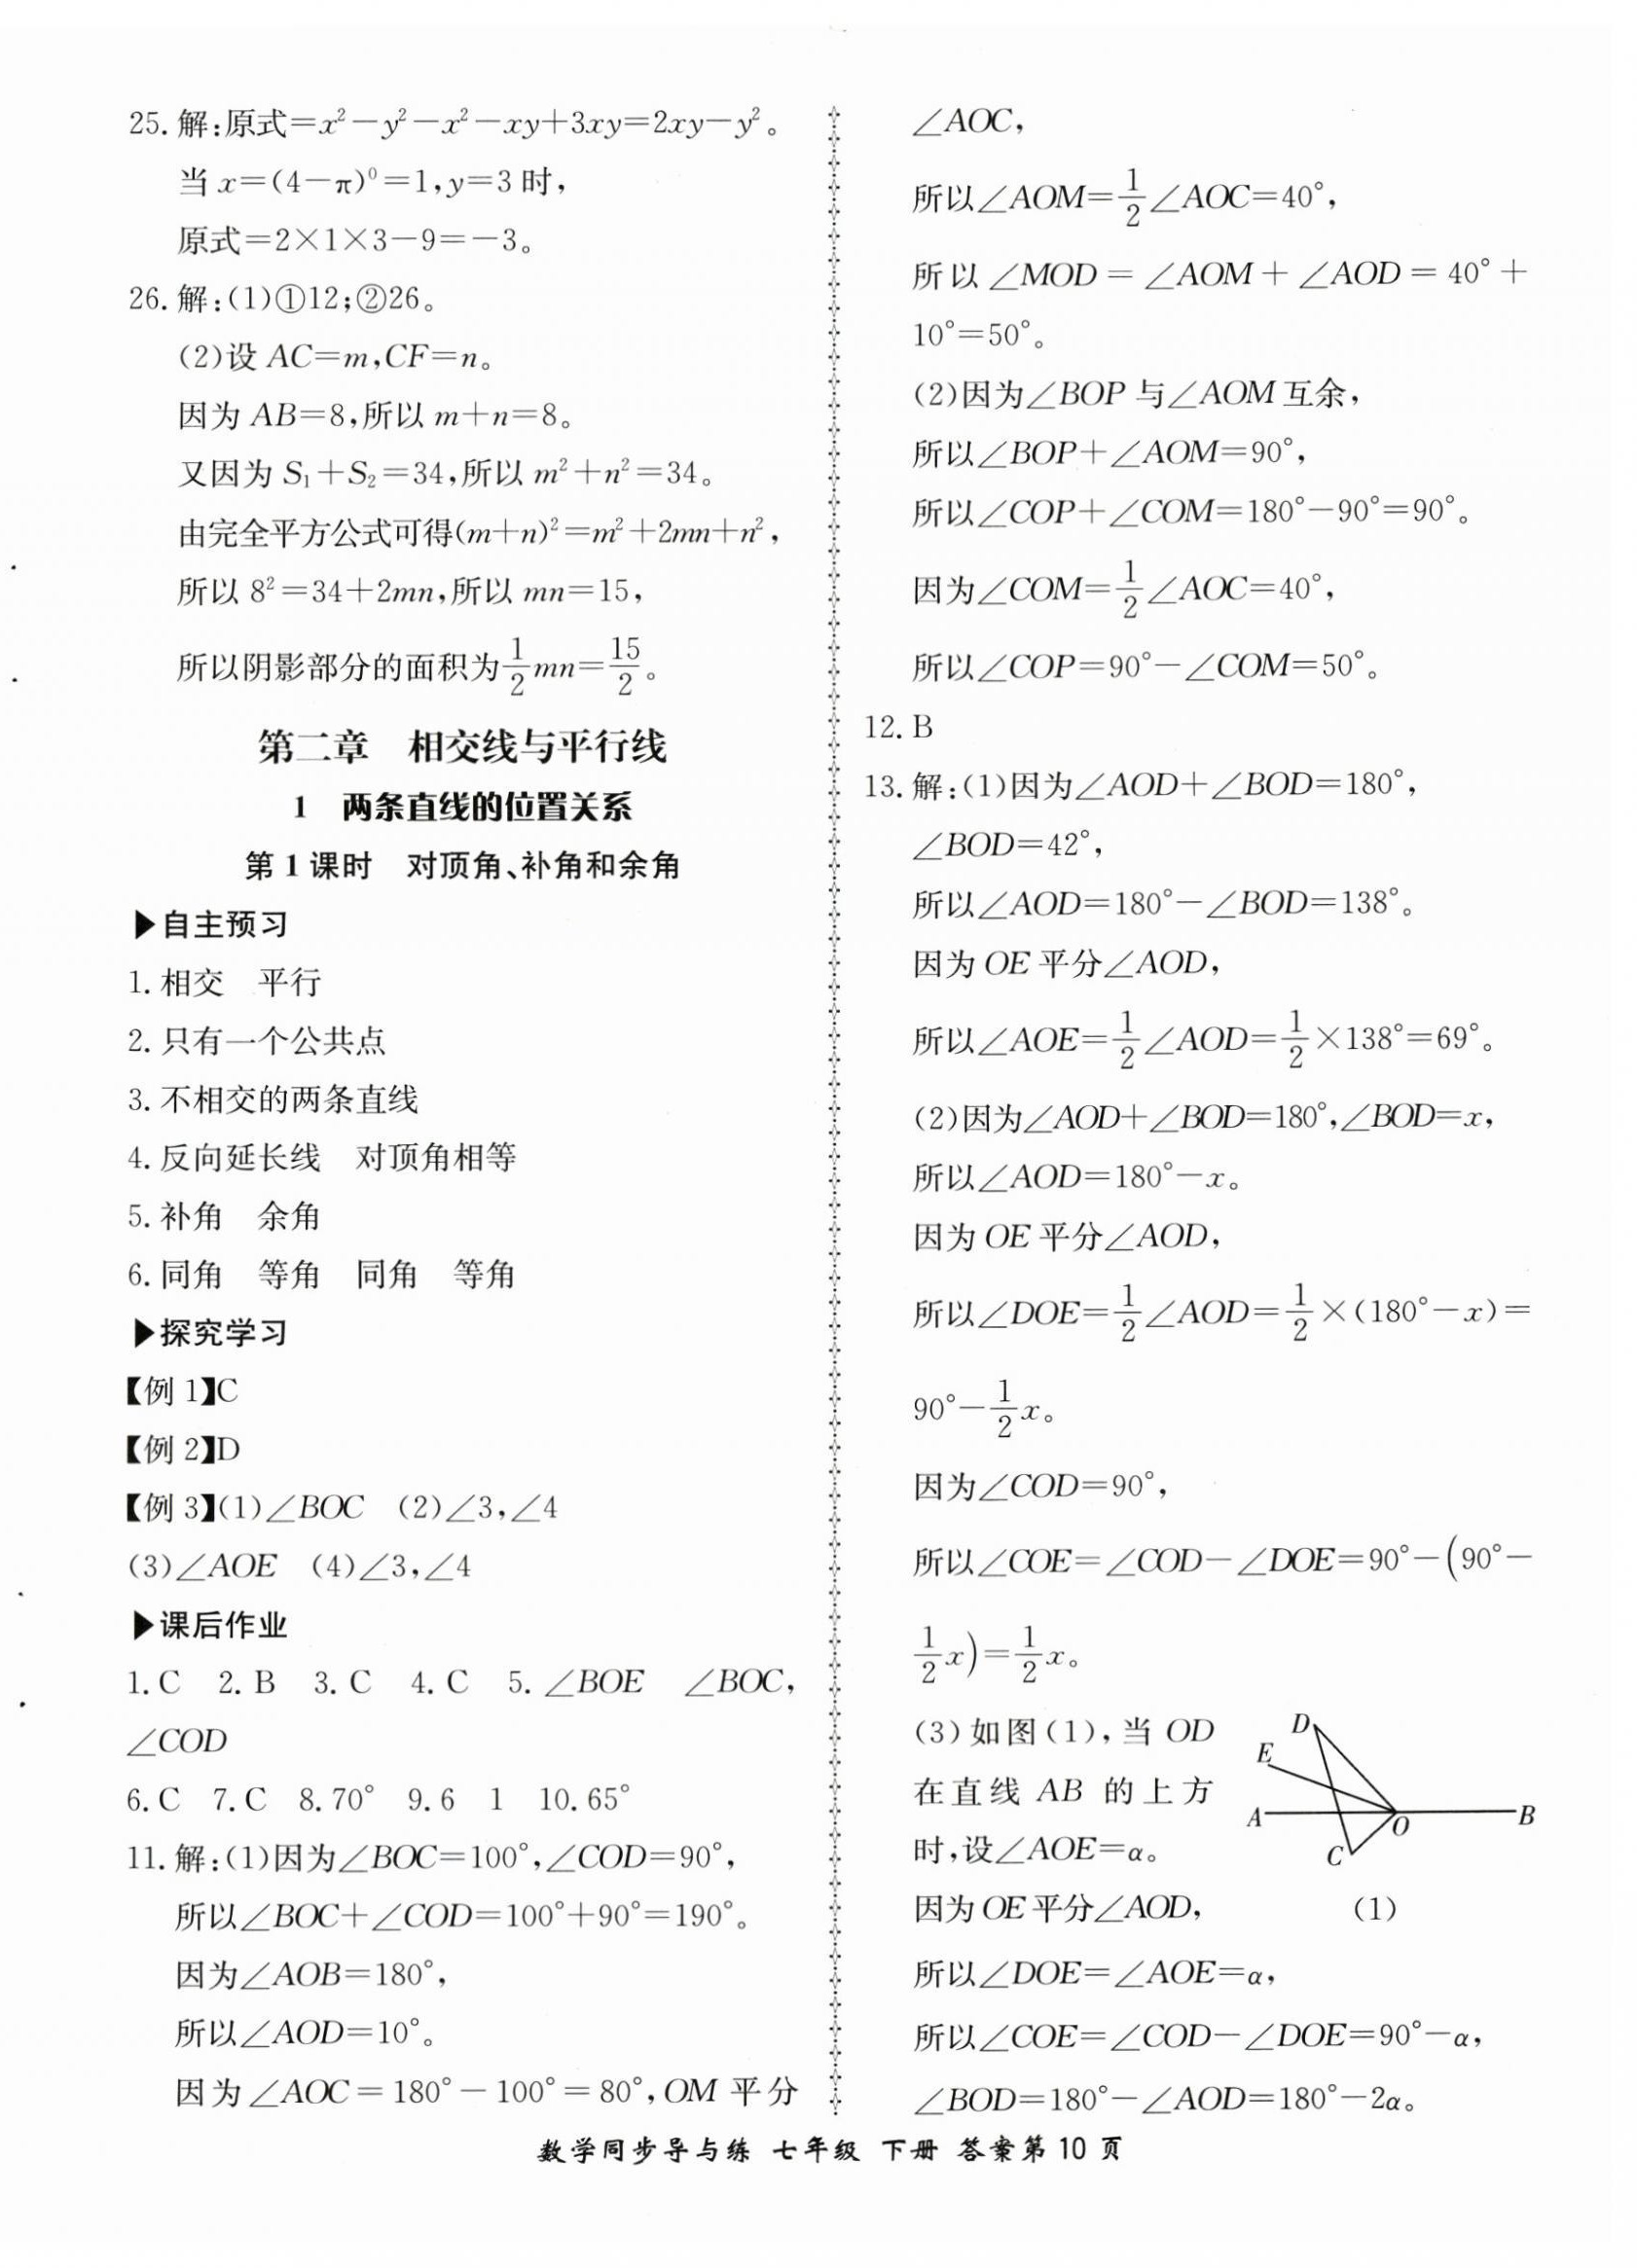 25. 解:原式=x²-y²-x²-xy+3xy=2xy-y²。
当 x=(4-π)⁰=1,y=3 时,
原式=2×1×3-9=-3。
26. 解:(1)①12;②26。
(2)设 AC=m,CF=n。
因为 AB=8,所以 m+n=8。
又因为 S₁+S₂=34,所以 m²+n²=34。
由完全平方公式可得(m+n)²=m²+2mn+n²,
所以 8²=34+2mn,所以 mn=15,
所以阴影部分的面积为1/2 mn=15/2。
第二章 相交线与平行线
1 两条直线的位置关系
第 1 课时 对顶角、补角和余角
▶自主预习
1. 相交 平行
2. 只有一个公共点
3. 不相交的两条直线
4. 反向延长线 对顶角相等
5. 补角 余角
6. 同角 等角 同角 等角
▶探究学习
【例 1】C
【例 2】D
【例 3】(1)∠BOC (2)∠3,∠4
(3)∠AOE (4)∠3,∠4
▶课后作业
1. C 2. B 3. C 4. C 5. ∠BOE ∠BOC,
∠COD
6. C 7. C 8. 70° 9. 6 1 10. 65°
11. 解:(1)因为∠BOC=100°,∠COD=90°,
所以∠BOC+∠COD=100°+90°=190°。
因为∠AOB=180°,
所以∠AOD=10°。
因为∠AOC=180°-100°=80°,OM 平分
∠AOC,
所以∠AOM=1/2∠AOC=40°,
所以∠MOD=∠AOM+∠AOD=40°+
10°=50°。
(2)因为∠BOP 与∠AOM 互余,
所以∠BOP+∠AOM=90°,
所以∠COP+∠COM=180°-90°=90°。
因为∠COM=1/2∠AOC=40°,
所以∠COP=90°-∠COM=50°。
12. B
13. 解:(1)因为∠AOD+∠BOD=180°,
∠BOD=42°,
所以∠AOD=180°-∠BOD=138°。
因为 OE 平分∠AOD,
所以∠AOE=1/2∠AOD=1/2×138°=69°。
(2)因为∠AOD+∠BOD=180°,∠BOD=x,
所以∠AOD=180°-x。
因为 OE 平分∠AOD,
所以∠DOE=1/2∠AOD=1/2×(180°-x)=
90°-1/2 x。
因为∠COD=90°,
所以∠COE=∠COD-∠DOE=90°-(90°-
1/2 x)=1/2 x。
(3)如图(1),当 OD
在直线 AB 的上方
时,设∠AOE=α。
因为 OE 平分∠AOD,
D
E
A
O
B
C
(1)
所以∠DOE=∠AOE=α,
所以∠COE=∠COD-∠DOE=90°-α,
∠BOD=180°-∠AOD=180°-2α。
数学同步导与练 七年级 下册 答案第 10 页